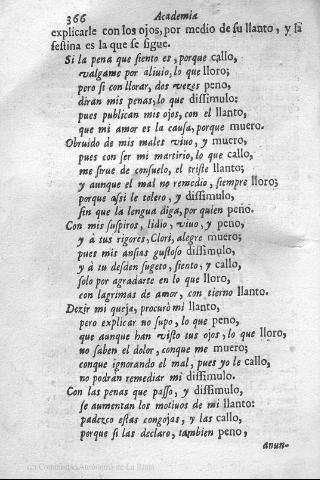 366 Academia
explicarle con los ojos, por medio de su llanto, y la
sestina es la que se sigue.
Si la pena que siento es, porque callo,
valgame por aliuio, lo que lloro;
pero si con llorar, dos vezes peno,
diran mis penas, lo que dissimulo:
pues publican mis ojos, con el llanto,
que mi amor es la causa, porque muero.
Obruido de mis males viuo, y muero,
pues con ser mi martirio, lo que callo,
me sirue de consuelo, el triste llanto;
y aunque el mal no remedio, siempre lloro;
porque assi le tolero, y dissimulo,
sin que la lengua diga, por quien peno.
Con mis suspiros, lidio, viuo, y peno,
y à tus rigores, Clori, alegre muero;
pues mis ansias gustoso dissimulo,
y à tu desden sugeto, siento, y callo,
solo por agradarte en lo que lloro,
con lagrimas de amor, con tierno llanto.
Dezir mi queja, procurò mi llanto,
pero explicar no supo, lo que peno,
que aunque han visto tus ojos, lo que lloro,
no saben el dolor, conque me muero;
conque ignorando el mal, pues yo le callo,
no podràn remediar mi dissimulo.
Con las penas que passo, y dissimulo,
se aumentan los motiuos de mi llanto:
padezco estas congojas, y las callo,
porque si las declaro, tambien peno,
anun-
(c) Comunidad Autónoma de La Rioja